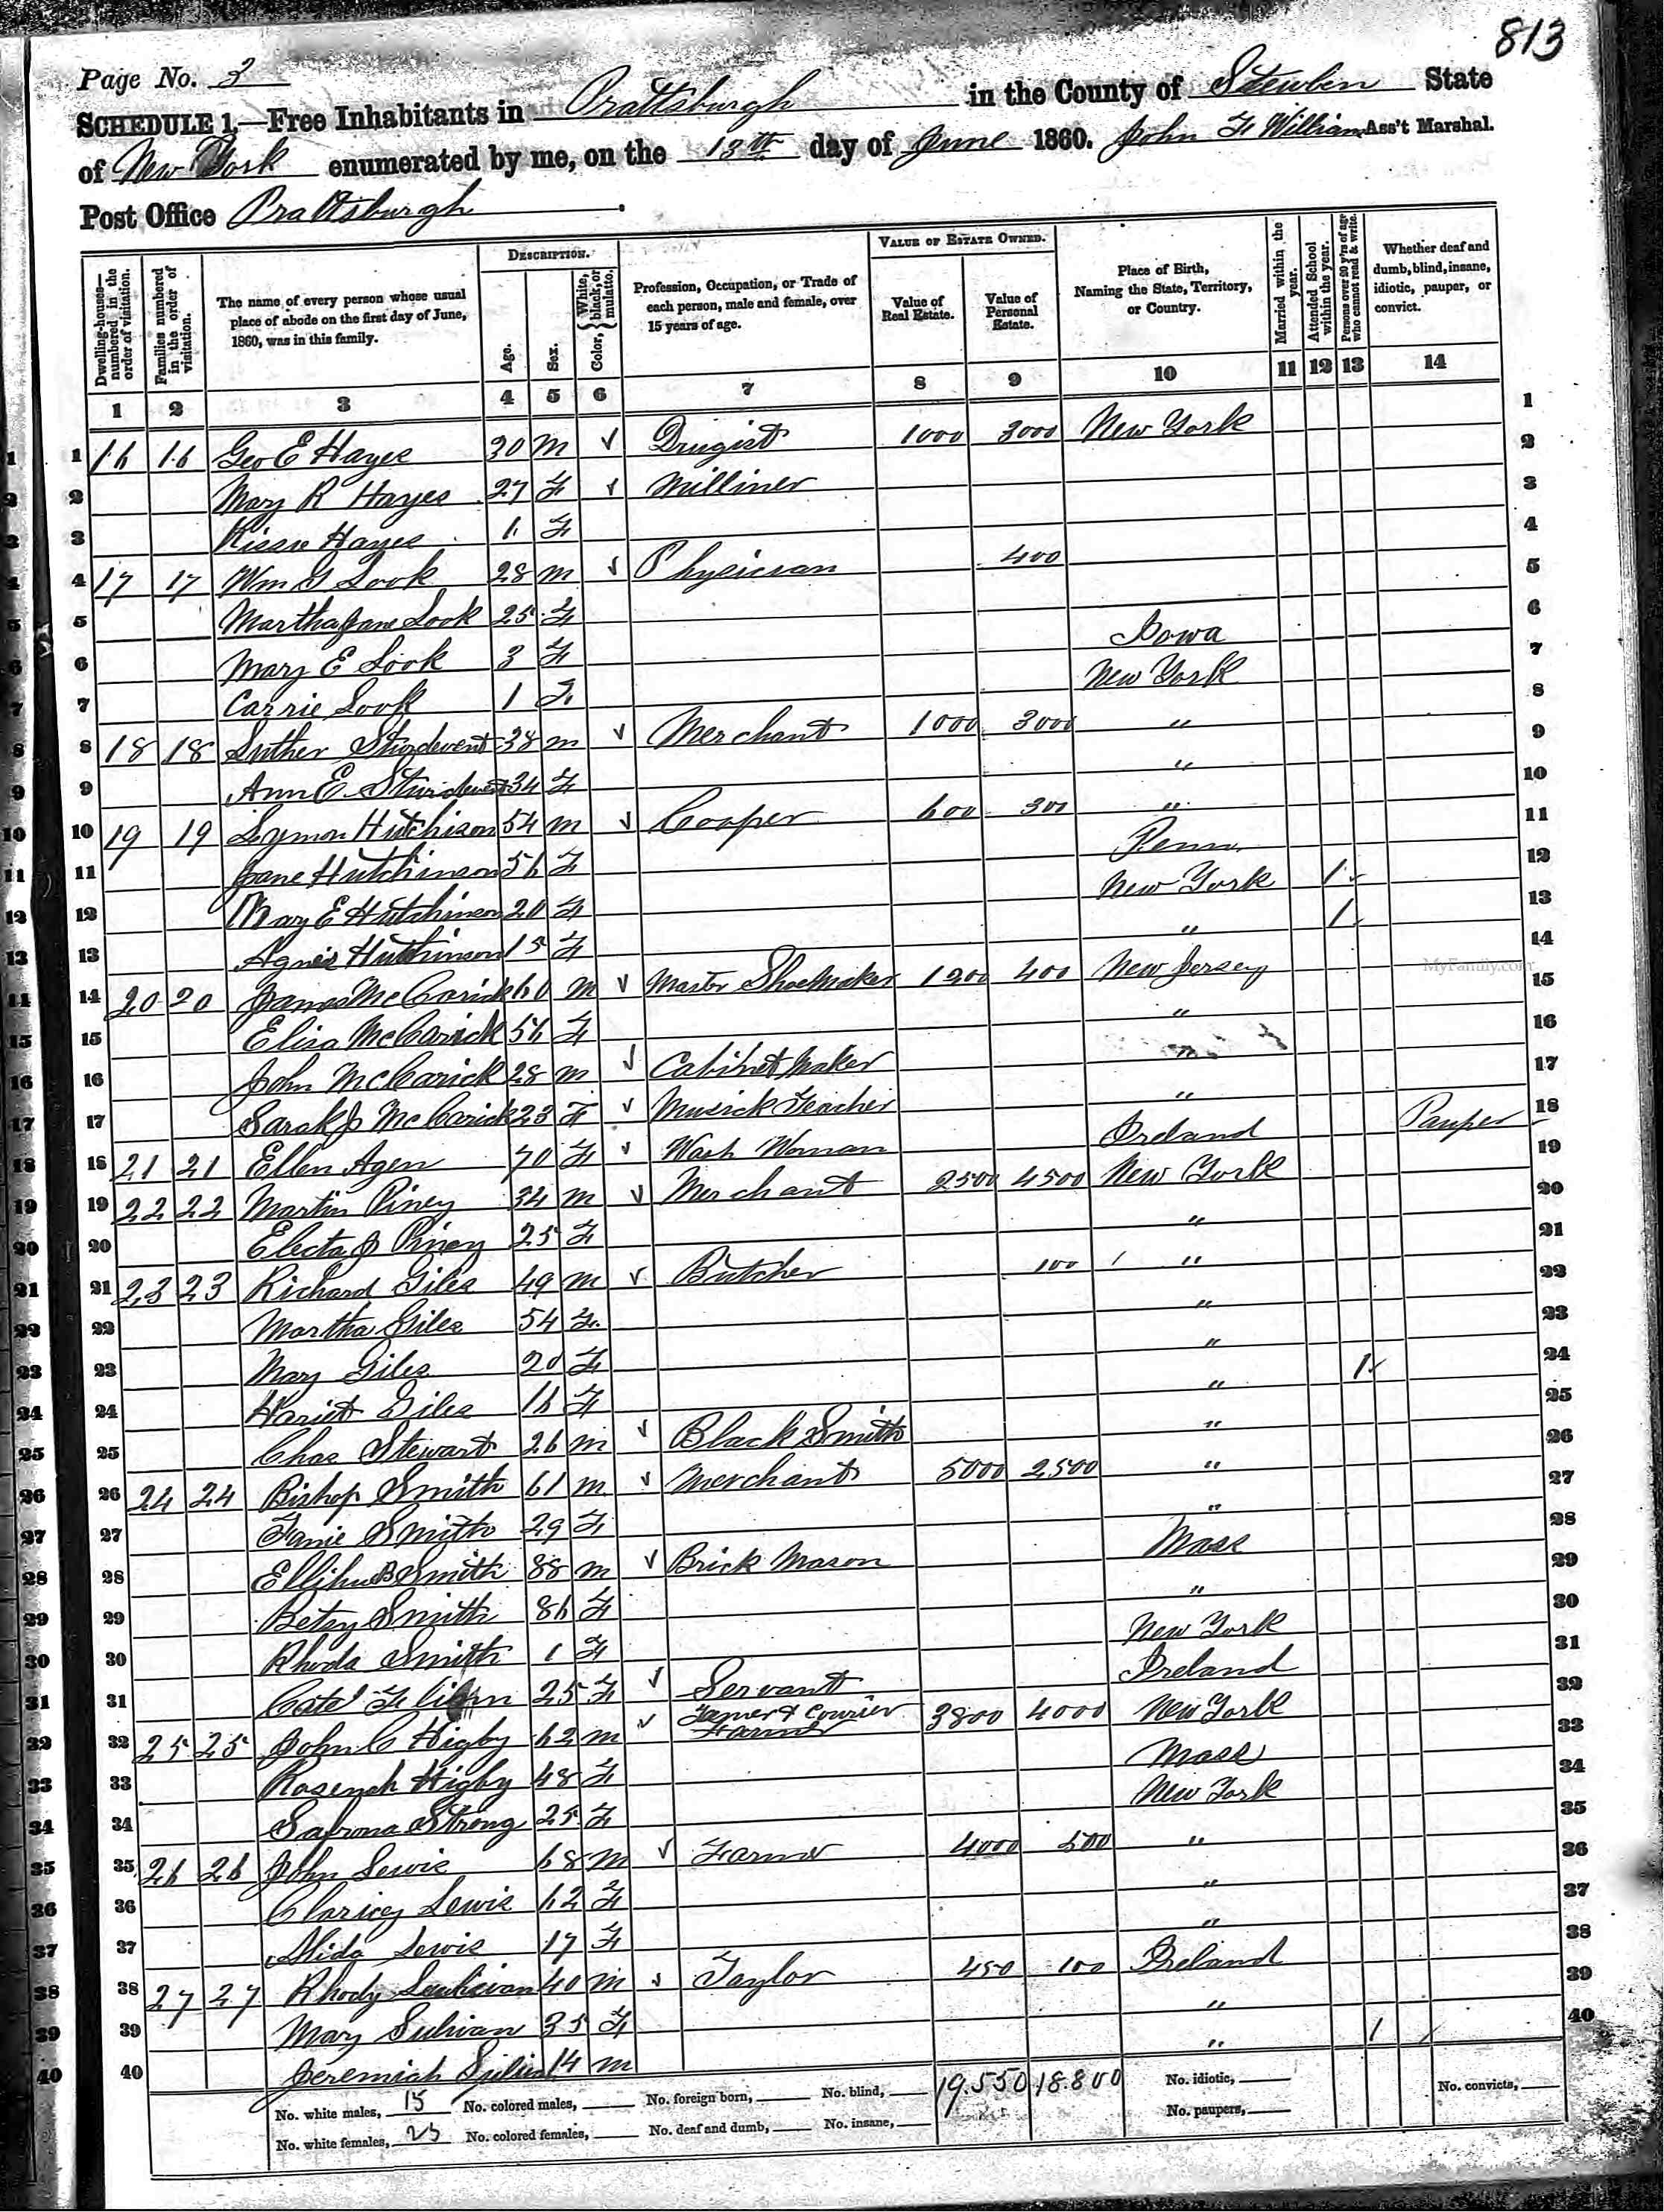 813
Page No. 3
SCHEDULE 1.—Free Inhabitants in Prattsburgh in the County of Steuben State
of New York enumerated by me, on the 13th day of June 1860. John F Williams Ass't Marshal.
Post Office Prattsburgh.
Dwelling-houses—numbered in the order of visitation. Families numbered in the order of visitation. The name of every person whose usual place of abode on the first day of June, 1860, was in this family. DESCRIPTION. Age. Sex. Color, {White, black, or mulatto. Profession, Occupation, or Trade of each person, male and female, over 15 years of age. VALUE OF ESTATE OWNED. Value of Real Estate. Value of Personal Estate. Place of Birth, Naming the State, Territory, or Country. Married within the year. Attended School within the year. Persons over 20 y'rs of age who cannot read & write. Whether deaf and dumb, blind, insane, idiotic, pauper, or convict.
1 2 3 4 5 6 7 8 9 10 11 12 13 14
1 16 16 Geo E Hayes 30 m Drugist 1000 3000 New York 1
2 Mary R Hayes 27 F Milliner 2
3 Hayes 1 F 3
4 17 17 Wm Look 28 m Physician 400 4
5 Martha Jane Look 25 F 5
6 Mary E Look 3 F Iowa 6
7 Carrie Look 1 F New York 7
8 18 18 Luther Sturdevent 38 m Merchant 1000 3000 " 8
9 Ann E Sturdevent 34 F " 9
10 19 19 Lymon Hutchison 54 m Cooper 600 300 " 10
11 Jane Hutchinson 56 F Penn 11
12 Mary E Hutchinson 20 F New York 1 12
13 Agnes Hutchinson 15 F " 1 13
14 20 20 James McCarick 60 m Master Shoemaker 1200 400 New Jersey 14
MyFamily.com
15 Eliza McCarick 56 F " 15
16 John McCarick 28 m Cabinet Maker " 16
17 Sarah J McCarick 23 F Musick Teacher " 17
18 21 21 Ellen Agen 70 F Wash Woman Ireland Pauper 18
19 22 22 Martin Piney 34 m Merchant 2500 4500 New York 19
20 Electa J Piney 25 F " 20
21 23 23 Richard Giles 49 m Butcher 100 " 21
22 Martha Giles 54 F " 22
23 Mary Giles 20 F " 23
24 Hariet Giles 16 F " 1 24
25 Chas Stewart 26 m Black Smith " 25
26 24 24 Bishop Smith 61 m Merchant 5000 2500 " 26
27 Fanie Smith 29 F " 27
28 Ellihu B Smith 88 m Brick Mason Mass 28
29 Betsy Smith 86 F " 29
30 Rhoda Smith 1 F New York 30
31 Cate 25 F Servant Ireland 31
32 25 25 John C Higby 62 m Courier Farmer 3800 4000 New York 32
33 Higby 48 F Mass 33
34 Safrona Strong 25 F New York 34
35 26 26 John Lewis 68 m Farmer 4000 500 " 35
36 Claricy Lewis 62 F " 36
37 Alida Lewis 17 F " 37
38 27 27 Rhody 40 m Taylor 450 100 Ireland 38
39 Mary Sulivan 35 F " 39
40 Jeremiah 14 m " 1 40
No. white males, 15 No. colored males, No. foreign born, No. blind, 19.550 18.800 No. idiotic, No. convicts,
No. white females, 25 No. colored females, No. deaf and dumb, No. insane, No. paupers,